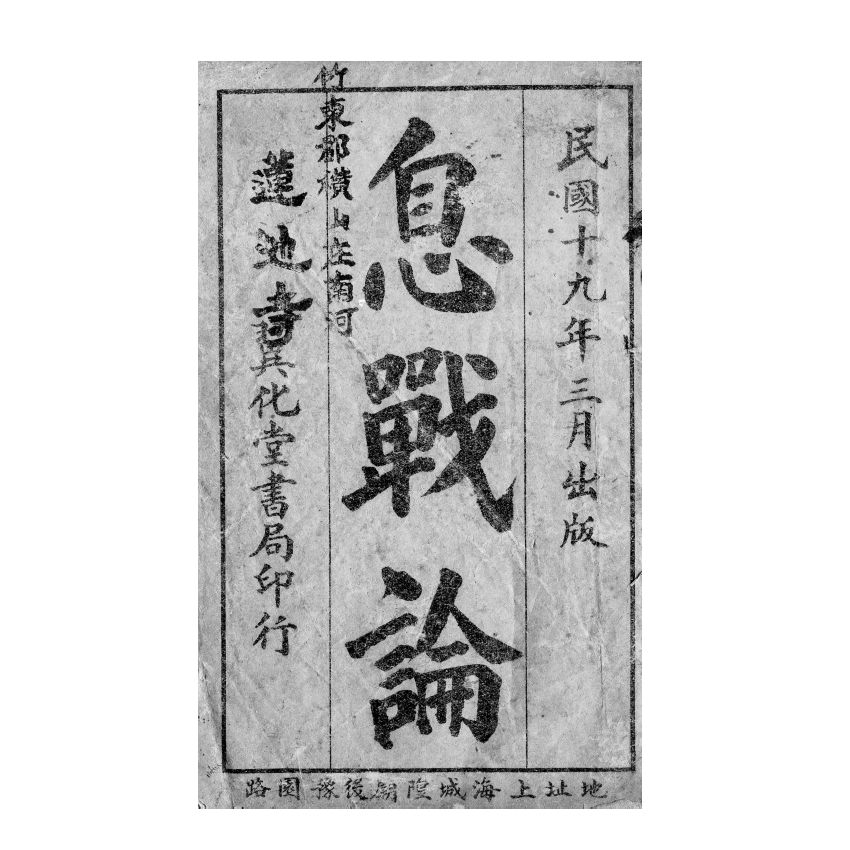 民國十九年三月出版
息戰論
竹東郡橫山庄南河
蓮池寺
翼化堂書局印行
地址上海城隍廟後豫園路